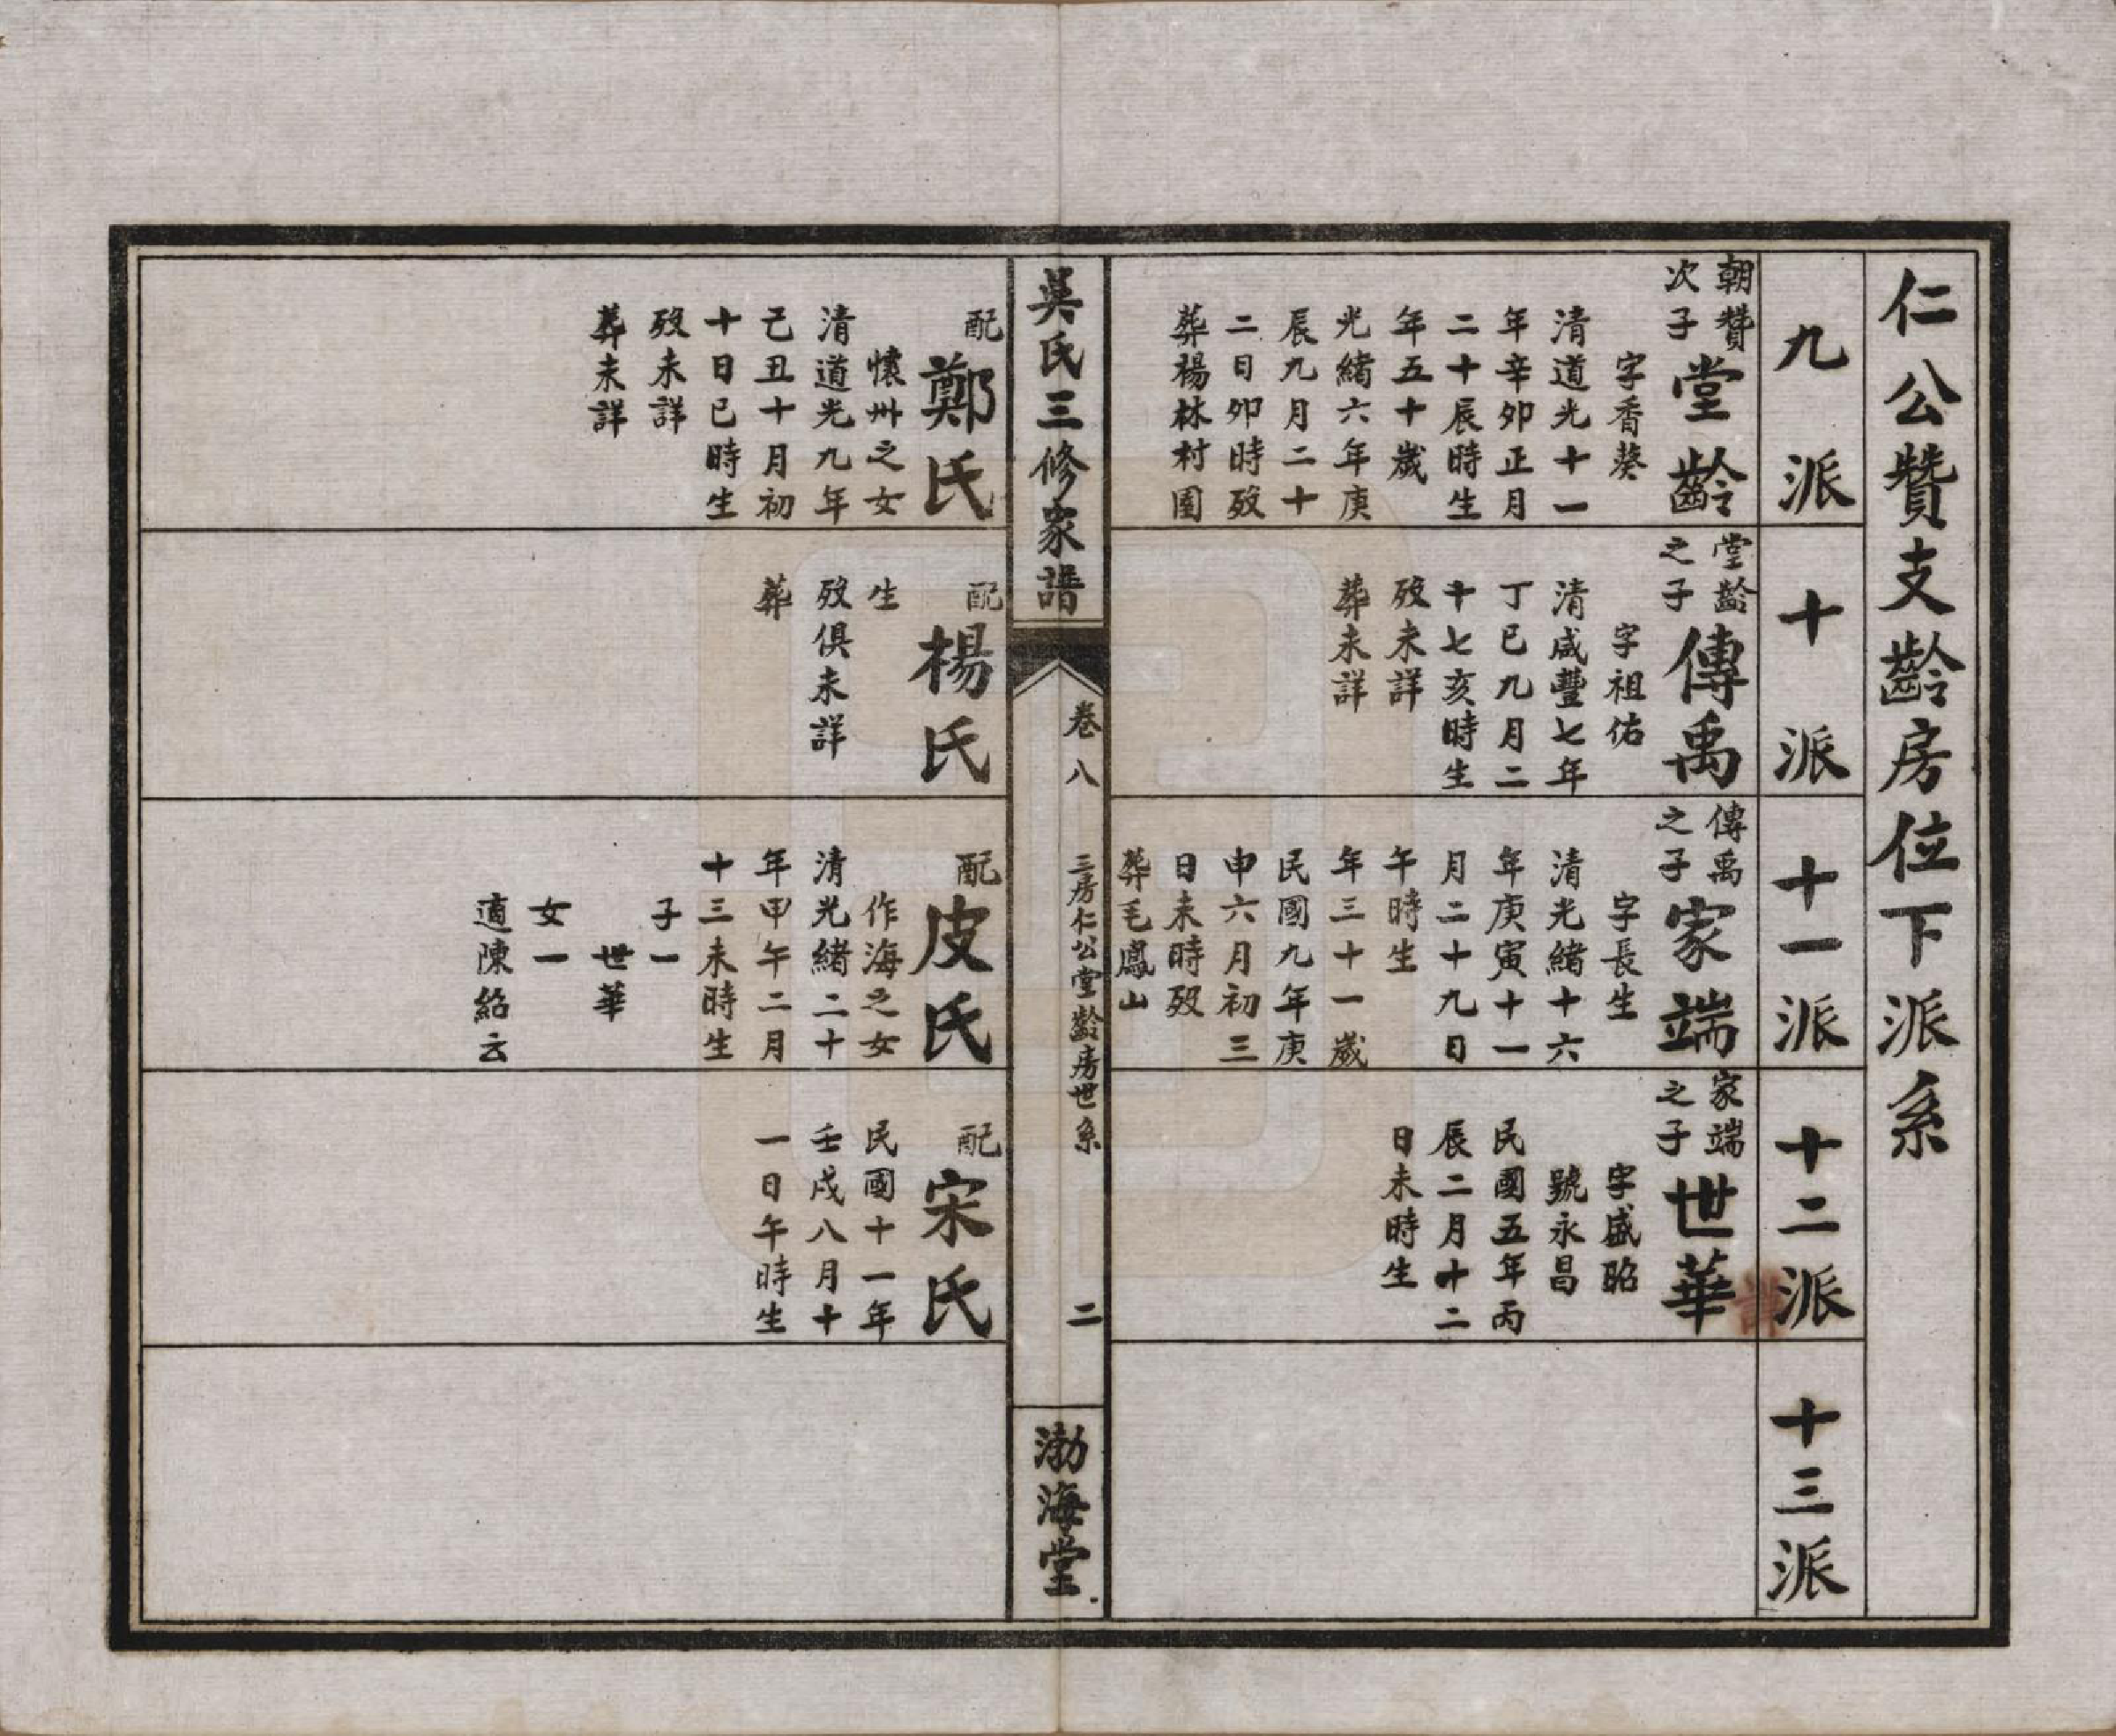 仁公贊支齡房位下派系
九派
朝贊
次子
堂齡
字香葵
清道光十一
年辛卯正月
二十辰時生
年五十歲
光緒六年庚
辰九月二十
二日卯時歿
葬楊林村園
十派
堂齡
之子
傳禹
字祖佑
清咸豐七年
丁巳九月二
十七亥時生
歿未詳
葬未詳
十一派
傳禹
之子
家端
字長生
清光緒十六
年庚寅十一
月二十九日
午時生
年三十一歲
民國九年庚
申六月初三
日未時歿
葬毛鳳山
十二派
家端
之子
世華
字盛昭
號永昌
民國五年丙
辰二月十二
日未時生
十三派
吳氏三修家譜
卷八
三房仁公堂齡房世系
二
渤海堂
配
鄭氏
懷州之女
清道光九年
己丑十月初
十日巳時生
歿未詳
葬未詳
配
楊氏
生
歿俱未詳
葬
配
皮氏
作海之女
清光緒二十
年甲午二月
十三未時生
子一
世華
女一
適陳紹云
配
宋氏
民國十一年
壬戌八月十
一日午時生